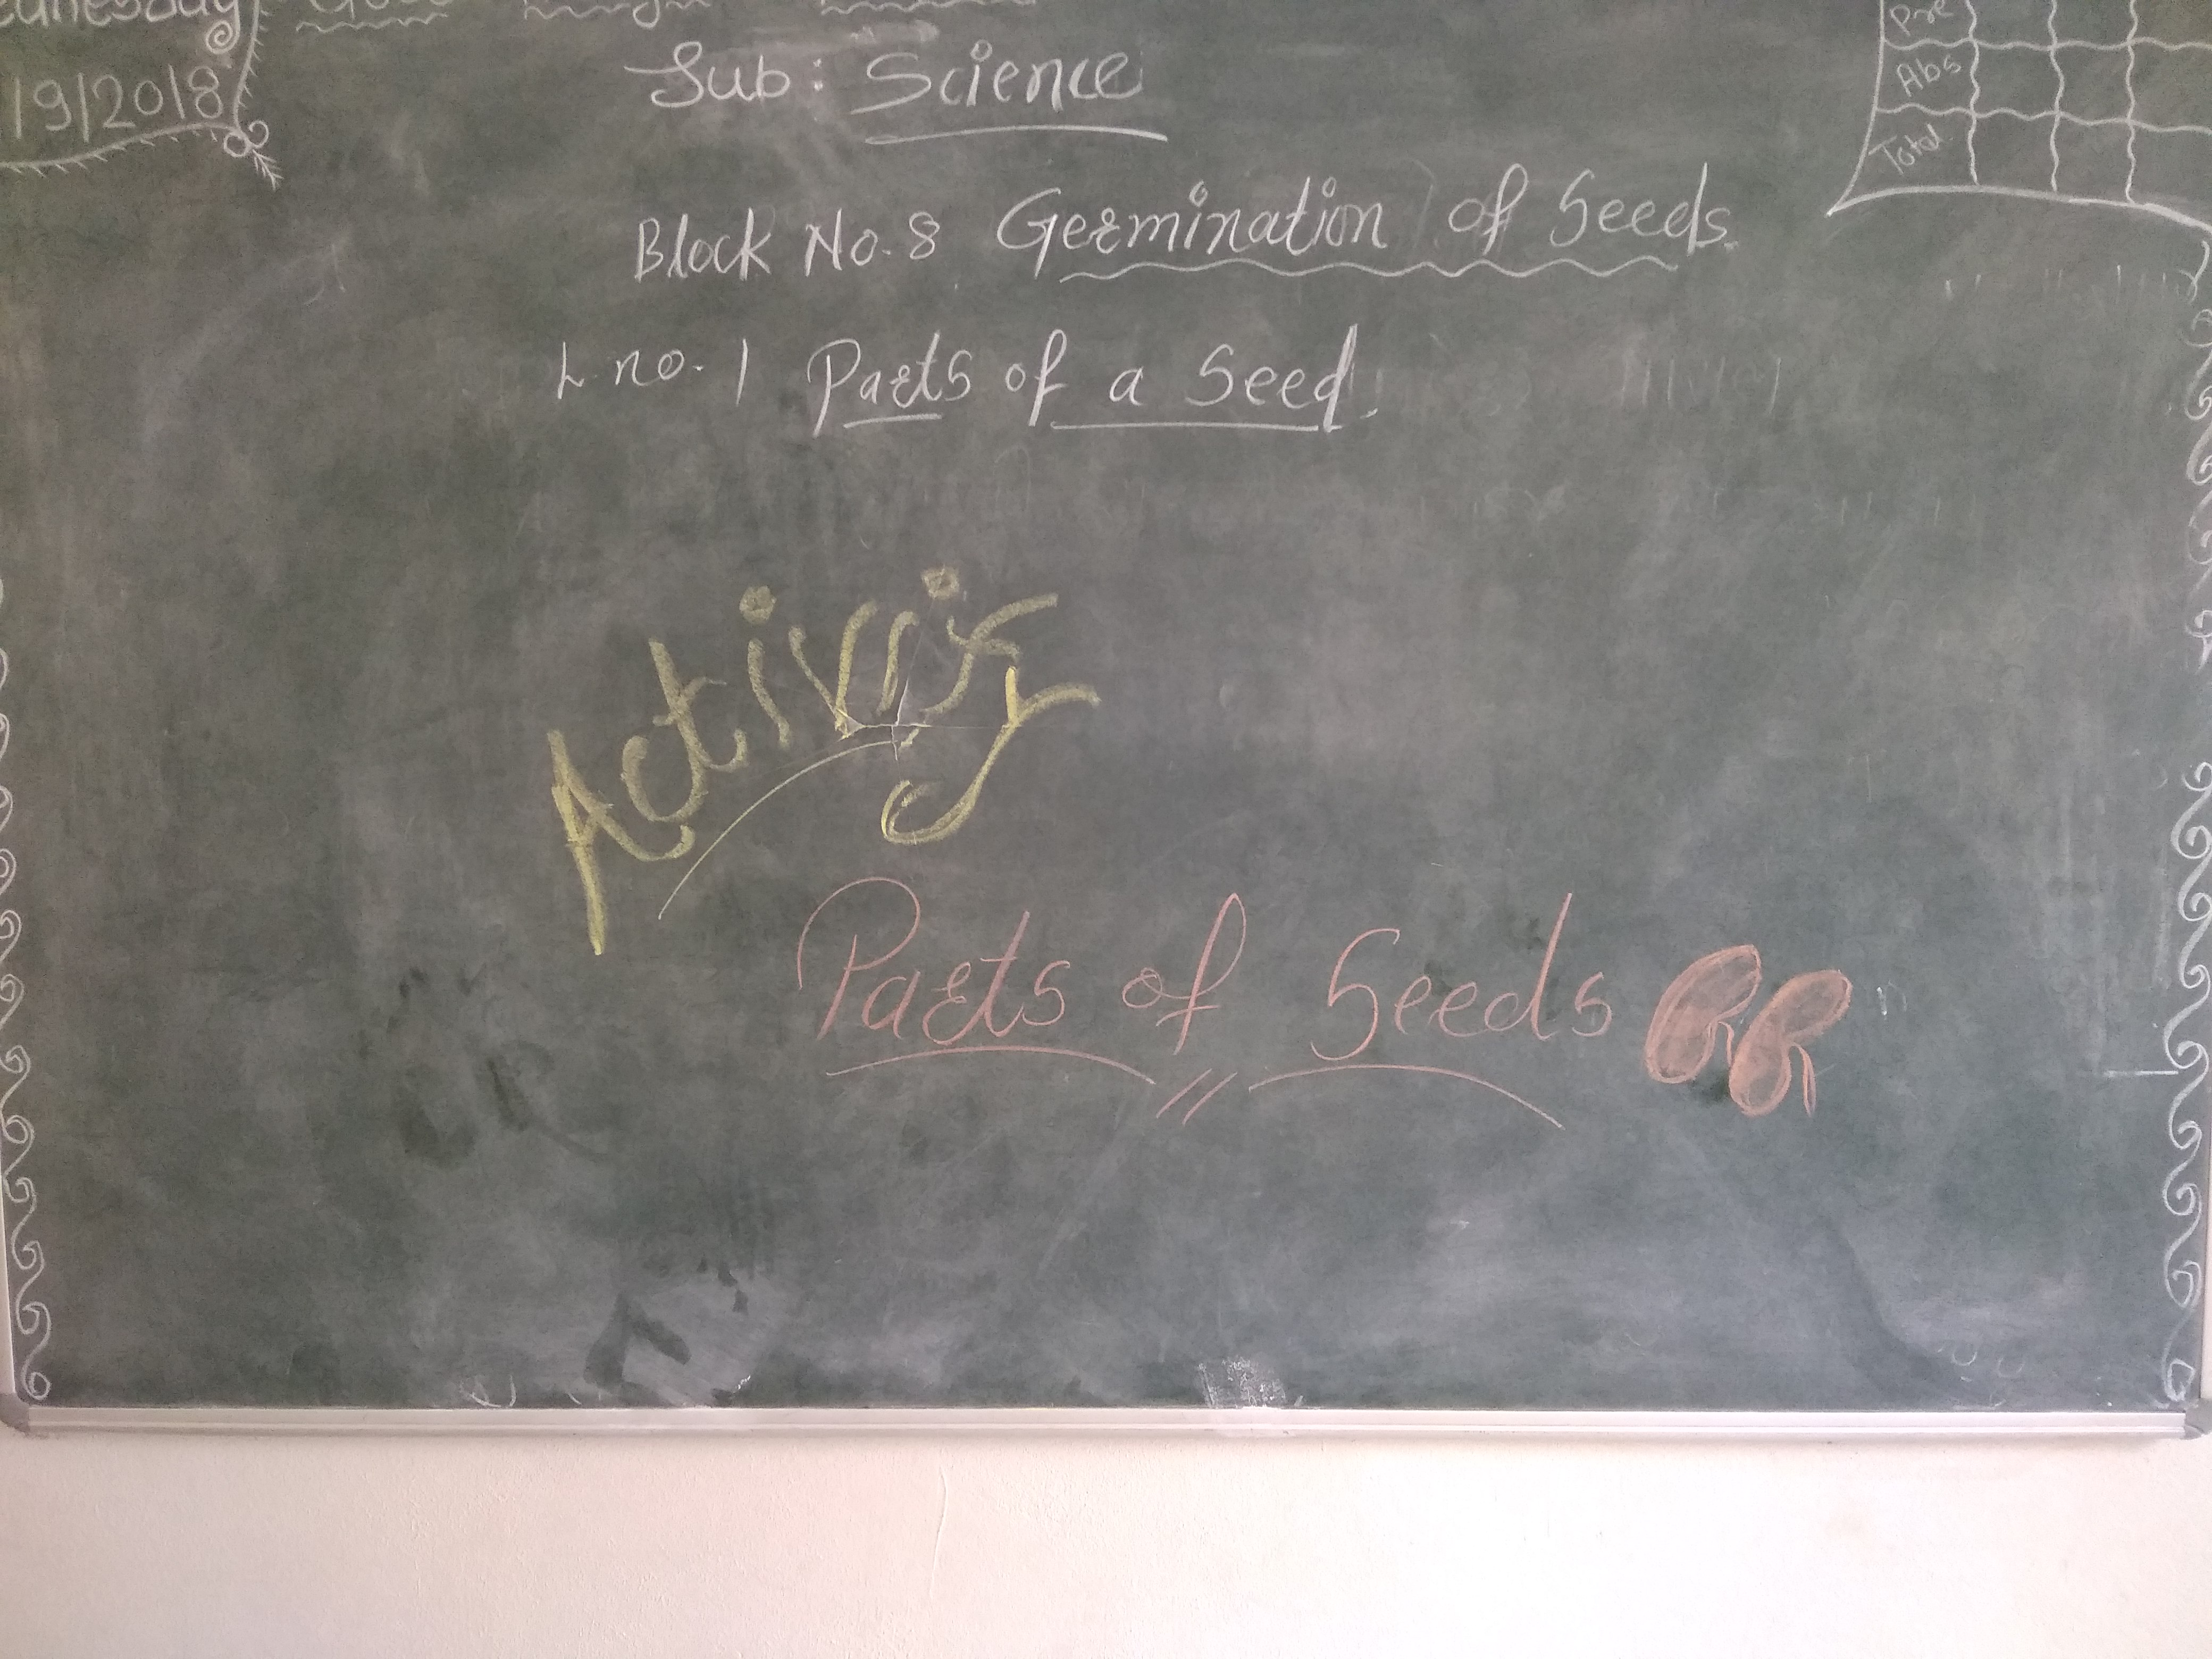 19/2018
Pre
Abs
Total
Sub: Science
Block No. 8 Germination of Seeds.
L no. 1 Parts of a Seed.
Activity
Parts of Seeds